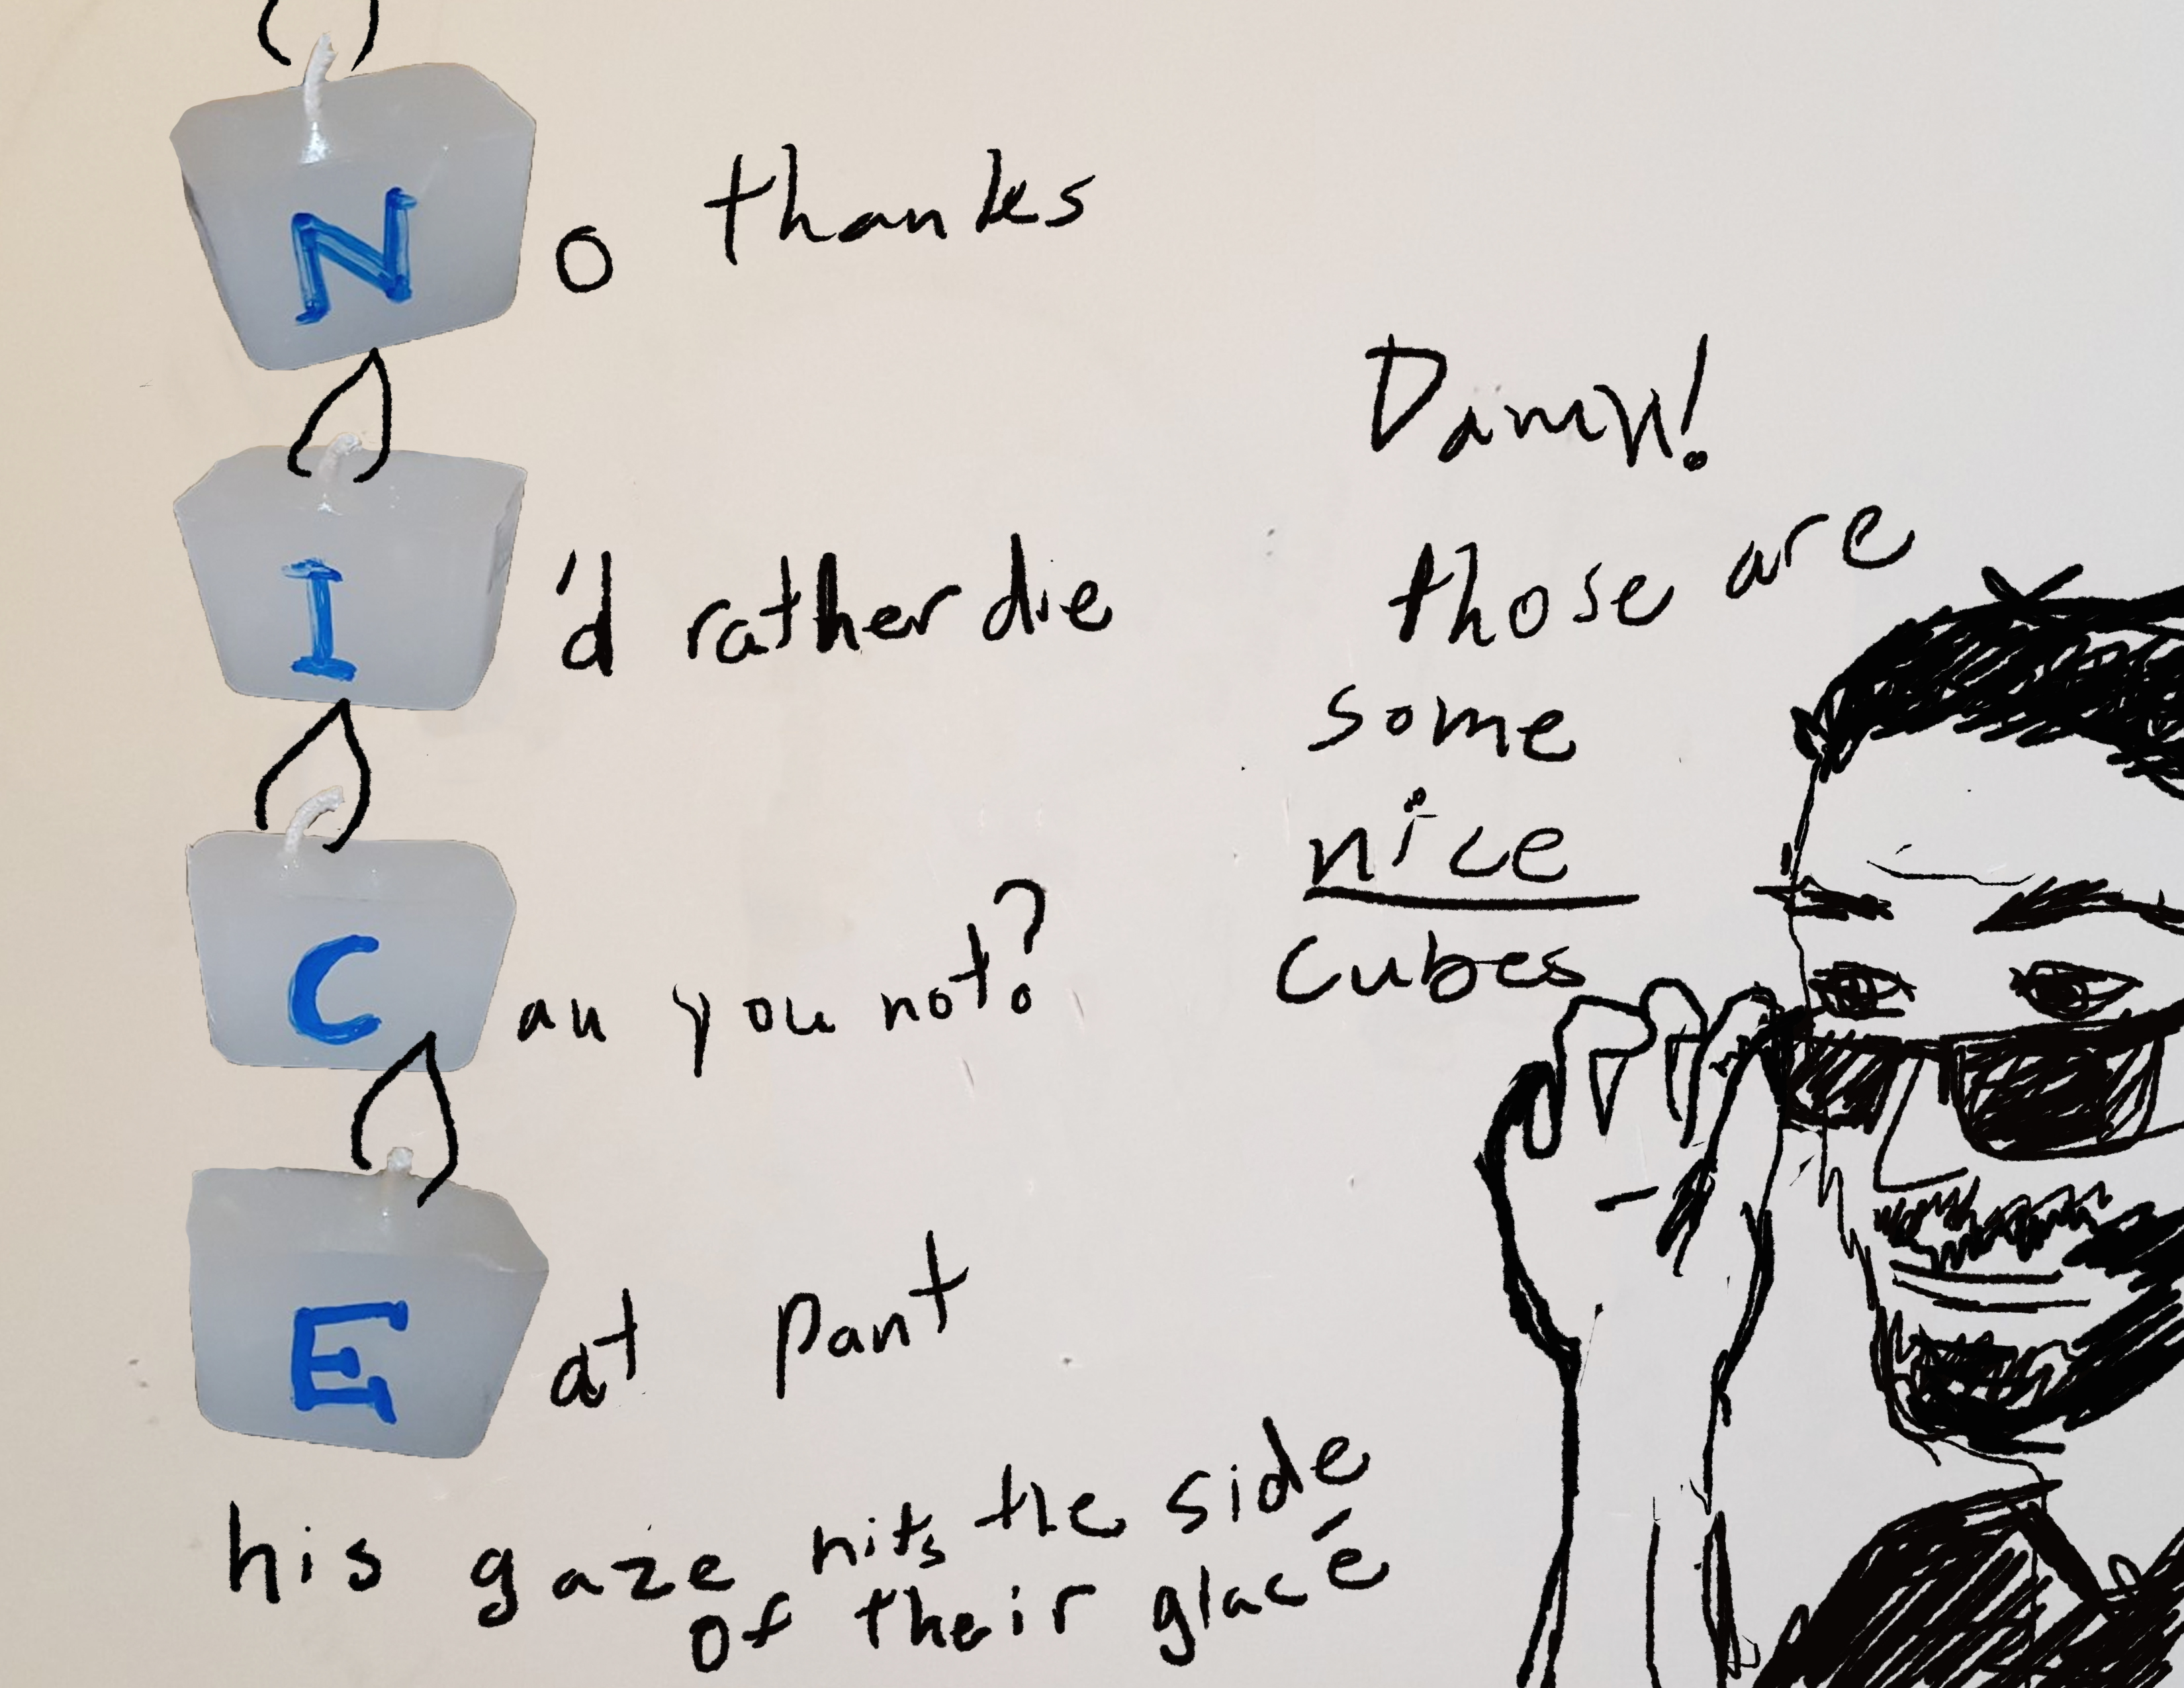 No thanks
I'd rather die
Can you not?
Eat pant
Damn!
those are
some
nice
cubes
his gaze hits the side
of their glacé